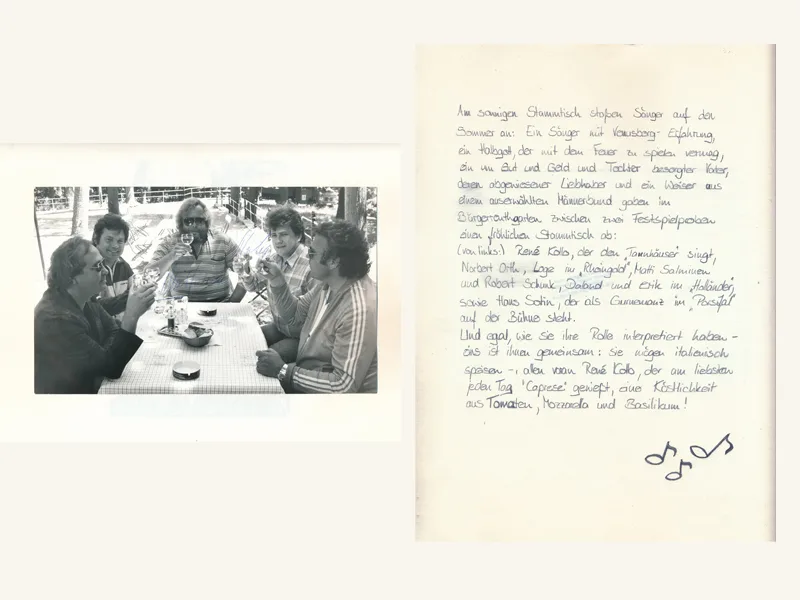 Am sonnigen Stammtisch stoßen Sänger auf den
Sommer an: Ein Sänger mit Venusberg-Erfahrung,
ein Halbgott, der mit dem Feuer zu spielen vermag,
ein um Gut und Geld und Tochter besorgter Vater,
deren abgewiesener Liebhaber und ein Weiser aus
einem auserwählten Männerbund gaben im
Bürgerreuthgarten zwischen zwei Festspielproben
einen fröhlichen Stammtisch ab:
(von links:) René Kollo, der den „Tannhäuser" singt,
Norbert Orth, Loge im „Rheingold", Matti Salminen
und Robert Schunk, Daland und Erik im „Holländer",
sowie Hans Sotin, der als Gurnemanz im „Parsifal"
auf der Bühne steht.
Und egal, wie sie ihre Rolle interpretiert haben -
eins ist ihnen gemeinsam: sie mögen italienisch
speisen - allen voran René Kollo, der am liebsten
jeden Tag "Caprese" genießt, eine Köstlichkeit
aus Tomaten, Mozzarella und Basilikum!